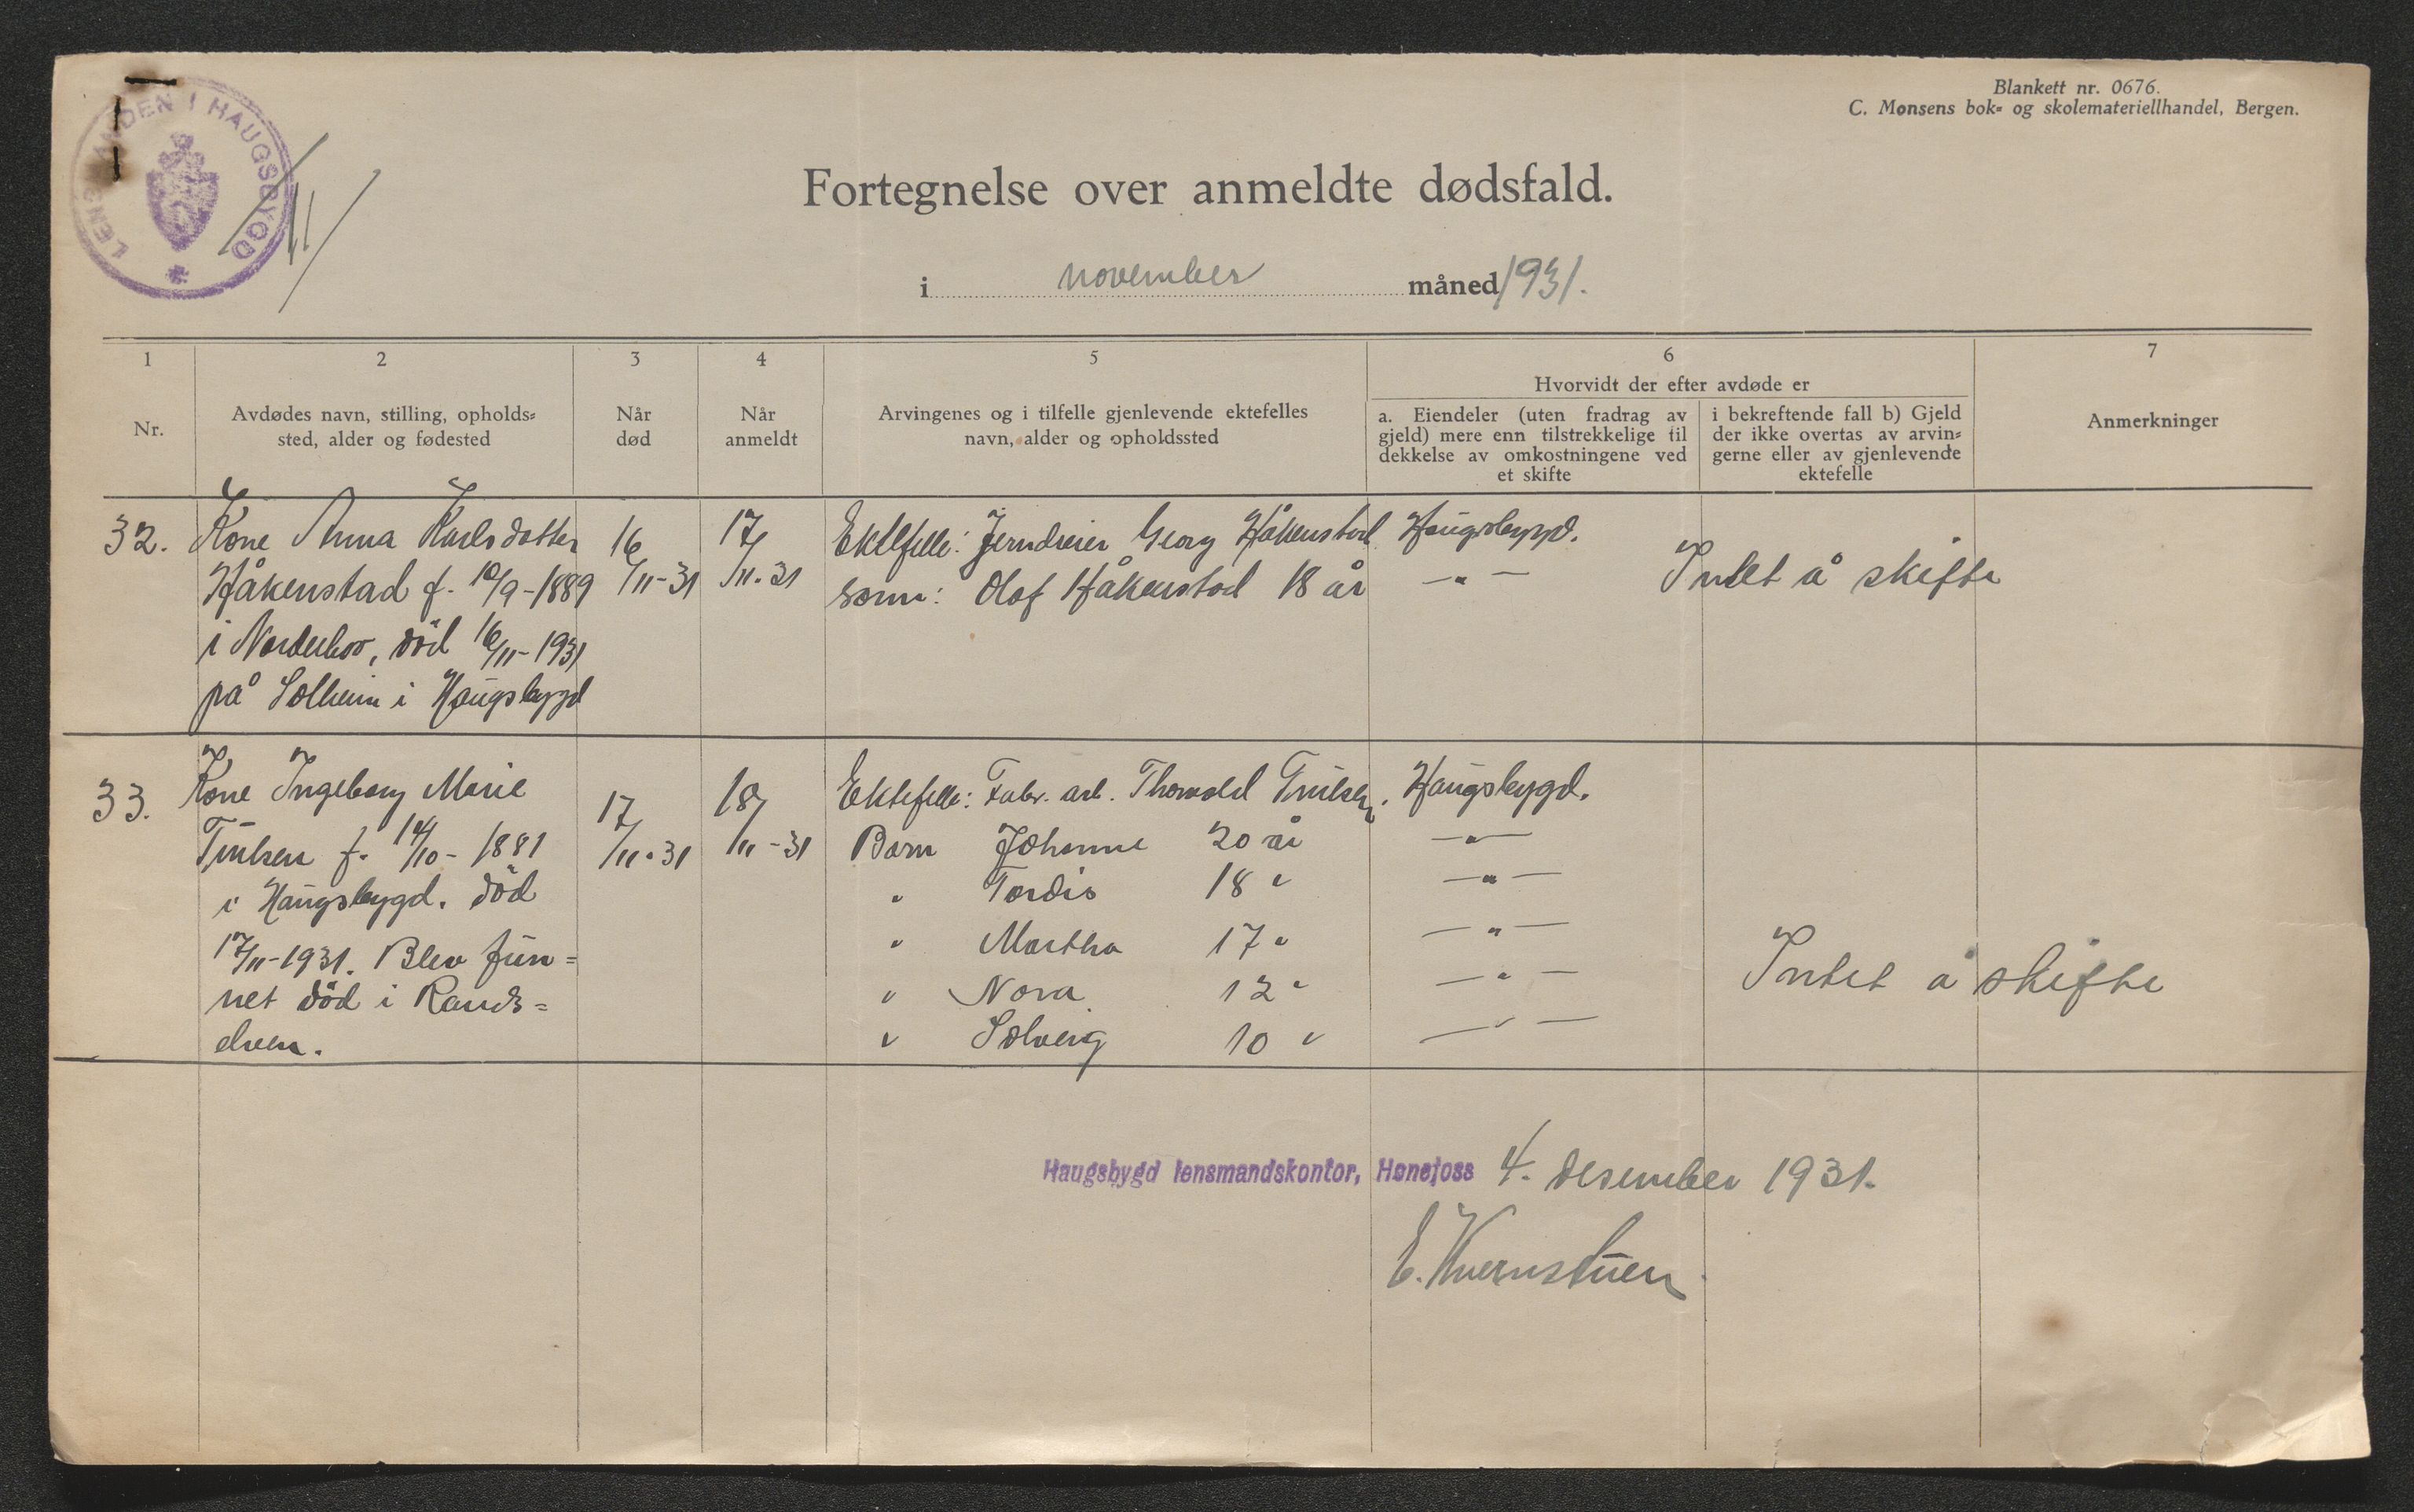 LENSMANDEN I HAUGSBYGD
11
Blankett nr. 0676.
C. Monsens bok- og skolemateriellhandel, Bergen.
Fortegnelse over anmeldte dødsfald.
i november måned 1931.
1 2 3 4 5 6 7
Nr.
Avdødes navn, stilling, opholds-
sted, alder og fødested
Når
død
Når
anmeldt
Arvingenes og i tilfelle gjenlevende ektefelles
navn, alder og opholdssted
Hvorvidt der efter avdøde er
a. Eiendeler (uten fradrag av
gjeld) mere enn tilstrekkelige til
dekkelse av omkostningene ved
et skifte
i bekreftende fall b) Gjeld
der ikke overtas av arvin-
gerne eller av gjenlevende
ektefelle
Anmerkninger
32.
Kone Anna Karlsdatter
Håkenstad f. 10/9-1889
i Norderhov, död 16/11-1931
på Solheim i Haugsbygd
16/11-31
17/11-31
Ektefelle: Jerndreier Georg Håkenstad Haugsbygd.
sønn: Olaf Håkenstad 18 år —"—
Intet å skifte
33.
Kone Ingeborg Marie
Trulsen f. 14/10-1881
i Haugsbygd. död
17/11-1931. Blev fun=
net död i Rands=
elven.
17/11-31
18/11-31
Ektefelle: Fabr. arb. Thorvald Trulsen. Haugsbygd.
Barn Johanne 20 år —"—
" Tordis 18 " —"—
" Martha 17 " —"—
" Nora 12 " —"—
" Solveig 10 " —"—
Intet å skifte
Haugsbygd lensmandskontor, Hønefoss 4. desember 1931.
E. Kvernstuen